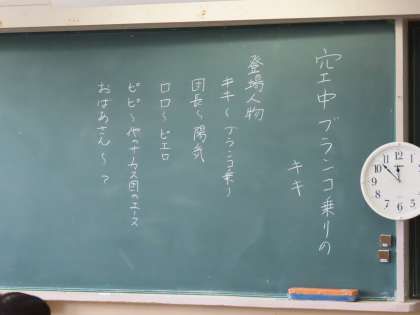 空中ブランコ乗りの
キキ
登場人物
キキ〜ブランコ乗り
団長〜陽気
ロロ〜ピエロ
ピピ〜他のサーカス団のエース
おばあさん〜?
10
11
12
1
2
3
4
5
6
7
8
9